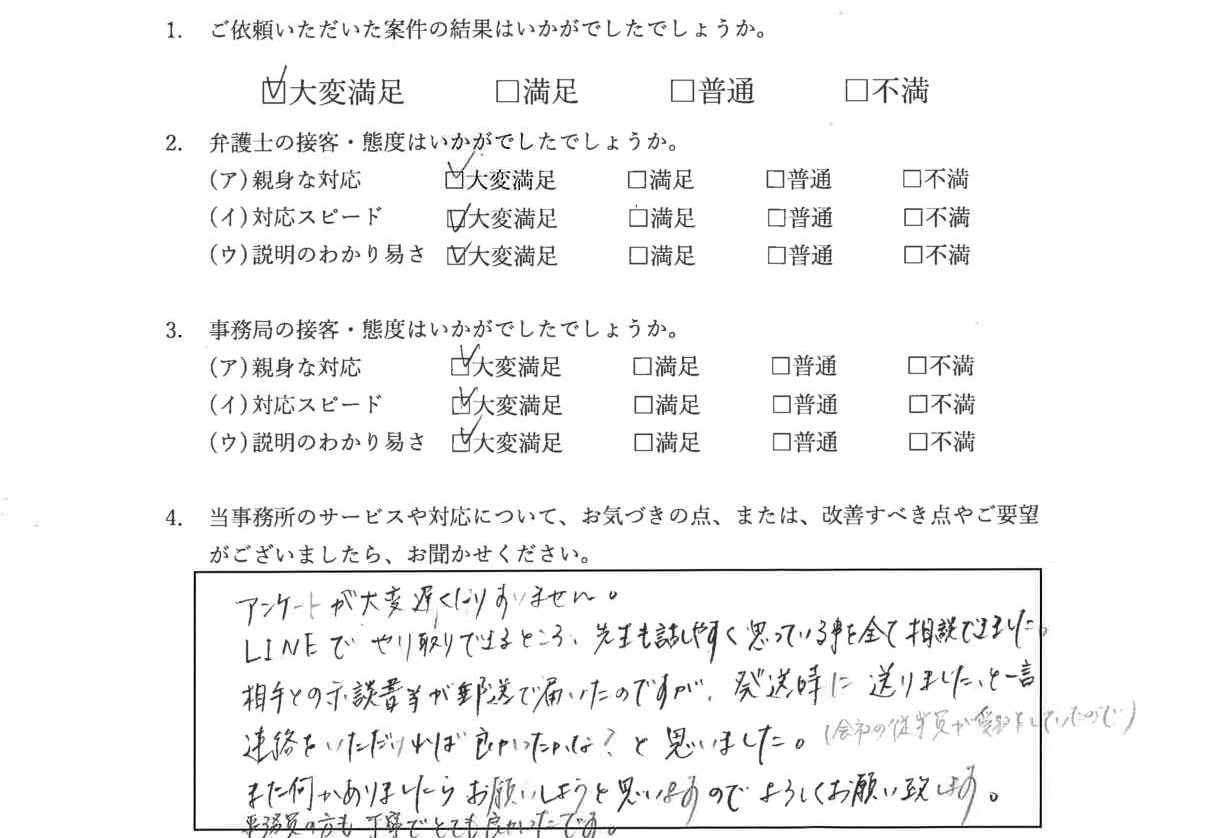 1. ご依頼いただいた案件の結果はいかがでしたでしょうか。
☑大変満足 □満足 □普通 □不満
2. 弁護士の接客・態度はいかがでしたでしょうか。
(ア)親身な対応 ☑大変満足 □満足 □普通 □不満
(イ)対応スピード ☑大変満足 □満足 □普通 □不満
(ウ)説明のわかり易さ ☑大変満足 □満足 □普通 □不満
3. 事務局の接客・態度はいかがでしたでしょうか。
(ア)親身な対応 ☑大変満足 □満足 □普通 □不満
(イ)対応スピード ☑大変満足 □満足 □普通 □不満
(ウ)説明のわかり易さ ☑大変満足 □満足 □普通 □不満
4. 当事務所のサービスや対応について、お気づきの点、または、改善すべき点やご要望
がございましたら、お聞かせください。
アンケートが大変遅くなりすいません。
LINEでやり取りできるところ、先生も話しやすく思っている事を全て相談できました。
相手との示談書等が郵送で届いたのですが、発送時に送りました、と一言
連絡をいただければ良かったかな?と思いました。(会社の従業員が受取をしていたので)
また何かありましたらお願いしようと思いますのでよろしくお願い致します。
事務員の方も丁寧でとても良かったです。